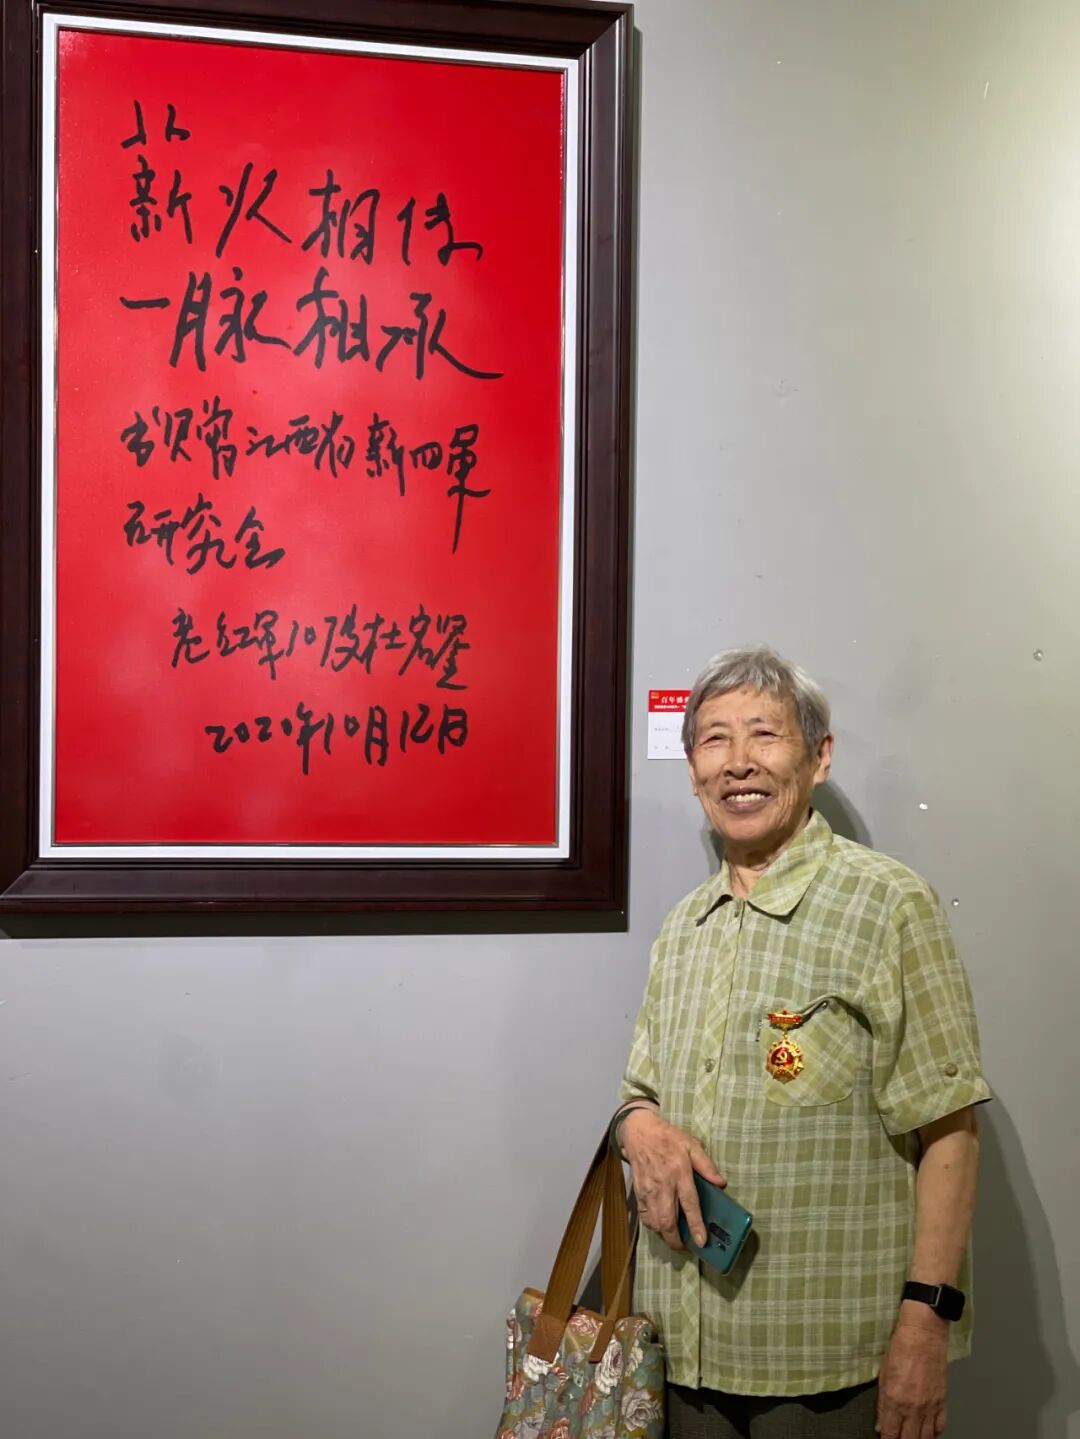 薪火相传
一脉相承
书赠江西省新四军
研究会
老红军107岁杜宏鉴
2020年10月12日
百年盛典